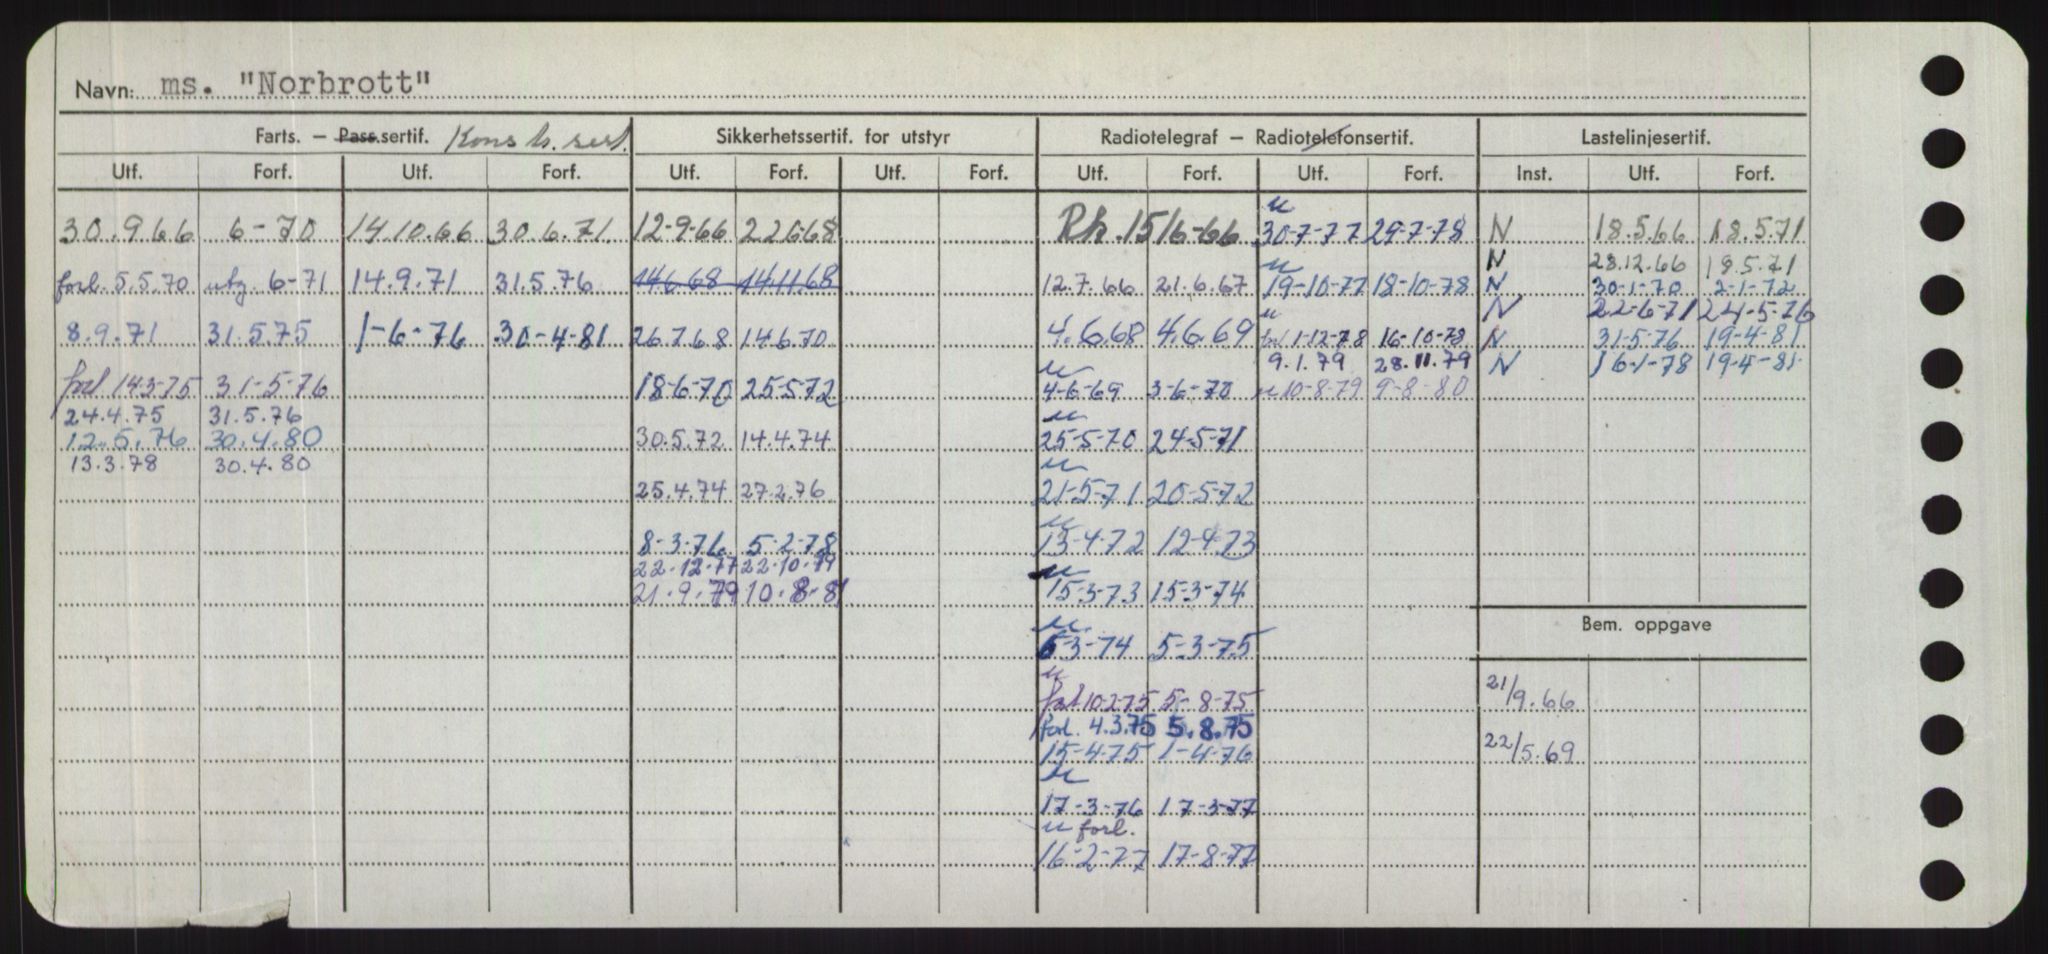 Navn: ms. "Norbrott"
Farts. — Pass.sertif. Konstr. sert. Sikkerhetssertif. for utstyr Radiotelegraf — Radiotelefonsertif. Lastelinjesertif.
Utf. Forf. Utf. Forf. Utf. Forf. Utf. Forf. Utf. Forf. Utf. Forf. Inst. Utf. Forf.
30.9.66 6-70 14.10.66 30.6.71. 12-9-66 22.6.68 Rh. 15/6-66 u 30-7-77 29-7-78 N 18.5.66 18.5.71
N 28.12.66 18.5.71
forl. 5.5.70 6-71 14.9.71 31.5.76 14.6.68 14.11.68 12.7.66 21.6.67 u 19-10-77 18-10-78 N 30-1-70 2-1-72
N 22-6-71 24-5-76
8.9.71 31.5.75 1-6-76 30-4-81 26.7.68 14.6.70 4.6.68 4.6.69 u forl 1-12-78 16-10-78 N 31-5-76 19-4-81
9.1.79 28.11.79 N 16-1-78 19-4-81
forl 14.3.75 31-5-76 18-6-70 25.5.72 u 4-6-69 3-6-70 u 10-8-79 9-8-80
24.4.75 31.5.76
12.5.76 30.4.80 30.5.72 14.4.74 u 25-5-70 24-5-71
13.3.78 30.4.80
25.4.74 27.2.76 u 21-5-71 20-5-72
8-3-76 5-2-78 u 13-4-72 12-4-73
22.12.77 22.10.79
21.9.79 10.8-81 u 15-3-73 15-3-74
Bem. oppgave
u 6-3-74 5-3-75
u forl 10-2-75 5-8-75 21/9.66
forl. 4.3.75 5.8.75
15-4-75 1-4-76 22/5.69
u
17-3-76 17-3-77
u forl.
16-2-77 17-8-77